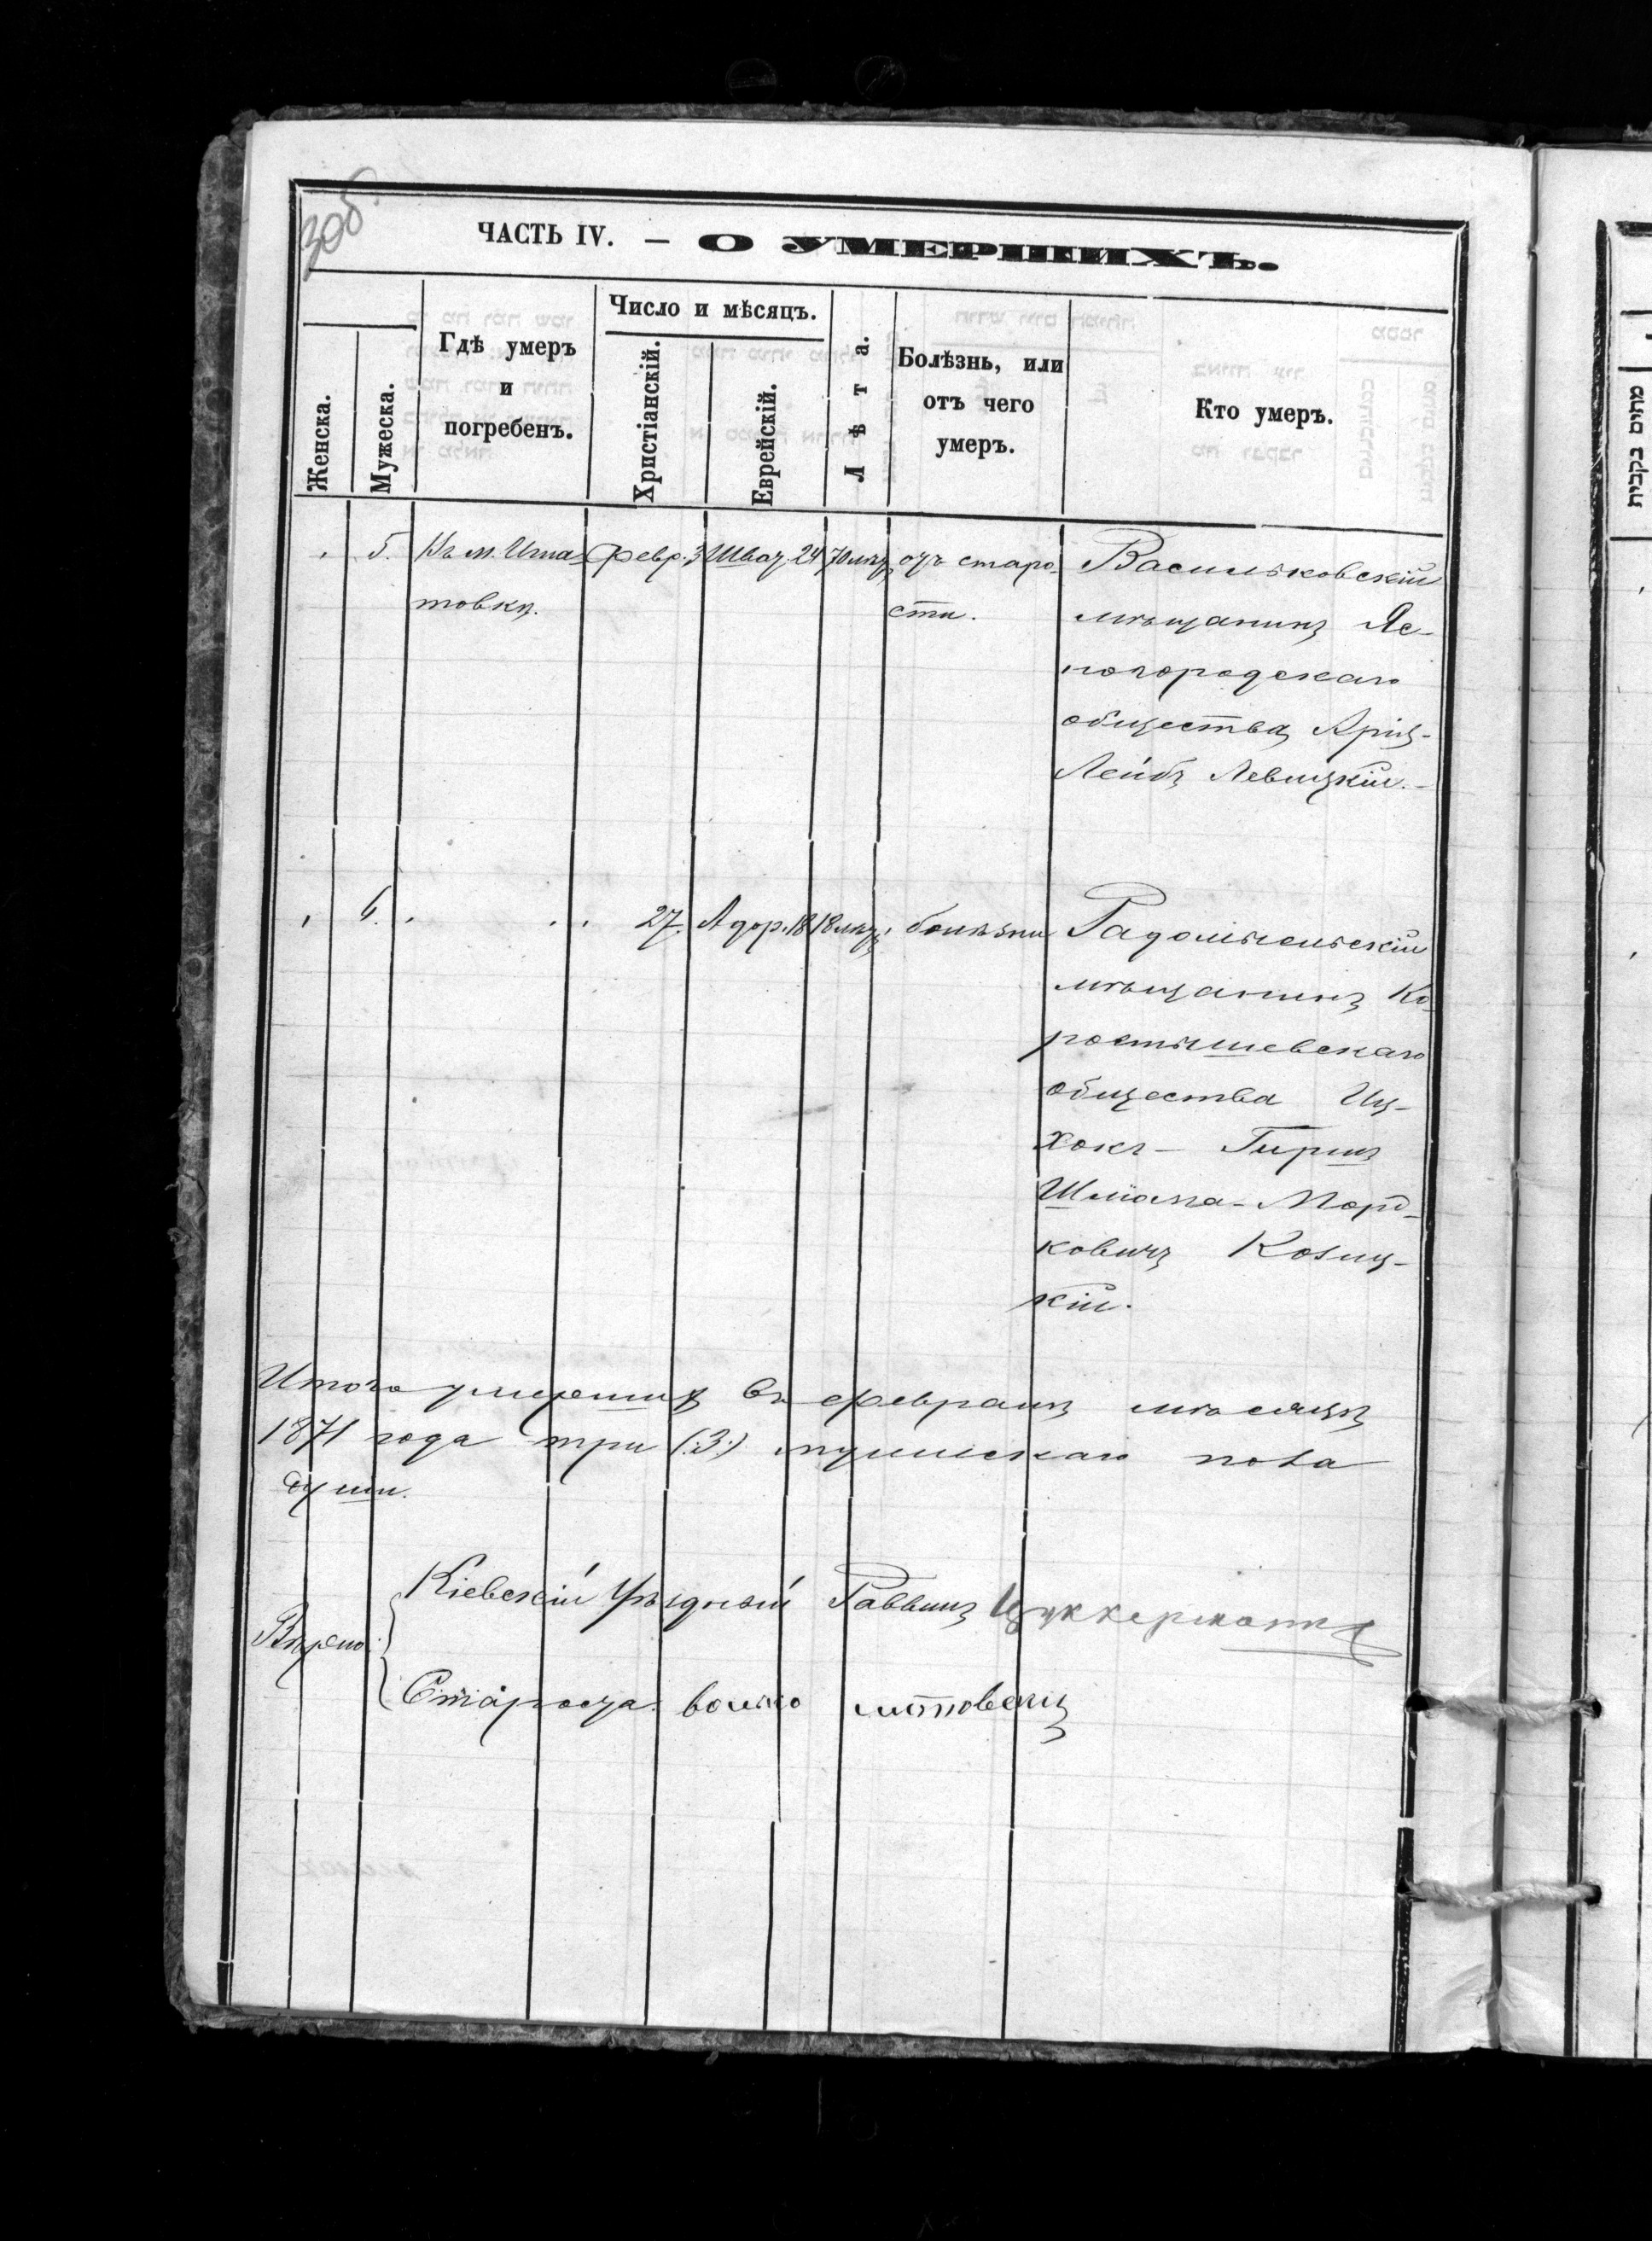 30об.
ЧАСТЬ IV. — О УМЕРШИХЪ.
Женска.
Мужеска.
Гдѣ умеръ
и
погребенъ.
Число и мѣсяцъ.
Христіанскій.
Еврейскій.
Лѣта.
Болѣзнь, или
отъ чего
умеръ.
Кто умеръ.
5. Въ м. Игна- Февр. 3 Шват. 24 70 лѣтъ отъ старо- Васильковскій
товкѣ. сти. мѣщанинъ Яс-
ногородскаго
общества, Аріъ-
Лейбъ Левицкій.-
6. 27. Адар. 18 18 лѣтъ болѣзни Радомысльскій
мѣщанинъ Ко-
ростышевскаго
общества Иц-
хокъ - Гиршъ
Шліома - Морд-
ковичъ Козиц-
кій.
Итого умершихъ въ Февралѣ мѣсяцѣ
1871 года три (:3:) мужескаго пола
души.
Вѣрно: Кіевскій Уѣздный Раввинъ Цуккерманъ
Староста волько
מתים בקבית